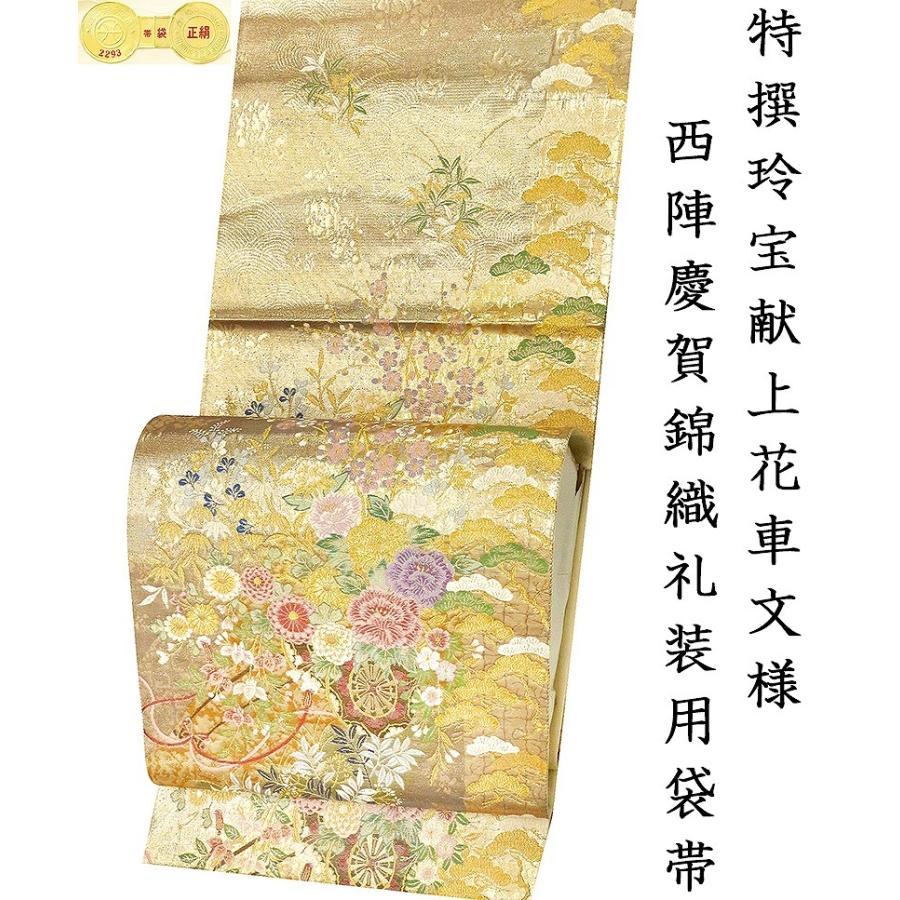 特撰玲宝献上花車文様
西陣慶賀錦織礼装用袋帯
帯袋
正絹
2293